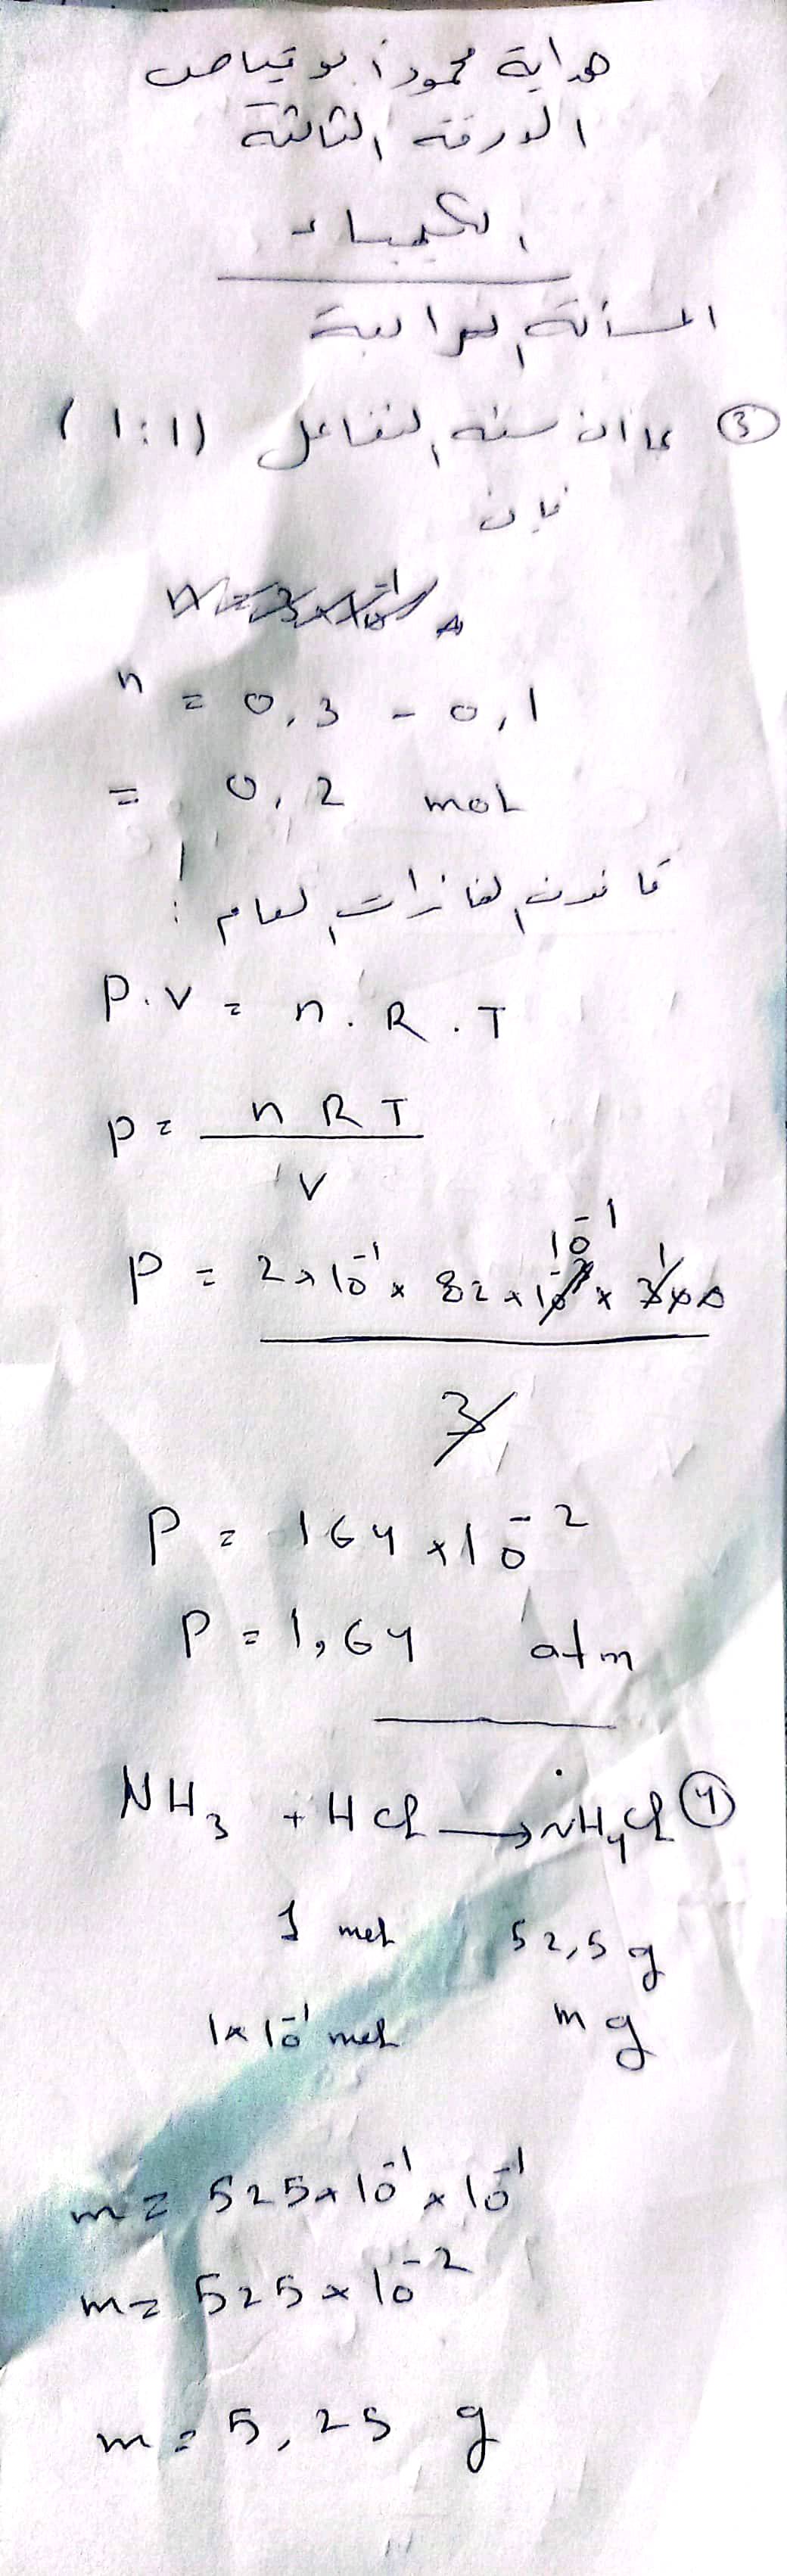 هداية محمود أبو قياص
الورقة الثالثة
الكيمياء
المسألة الرابعة
③ بما أن نسبة التفاعل (1:1)
فإن
n = 0,3 - 0,1
= 0,2 mol
قانون الغازات العام:
P.V = n.R.T
P = n R T / V
P = 2×10⁻¹ × 82×10⁻¹ × 1 / 3
P = 164×10⁻²
P = 1,64 atm
④ NH₃ + HCl → NH₄Cl
1 mol 52,5 g
1×10⁻¹ mol m g
m = 525×10⁻¹×10⁻¹
m = 525×10⁻²
m = 5,25 g